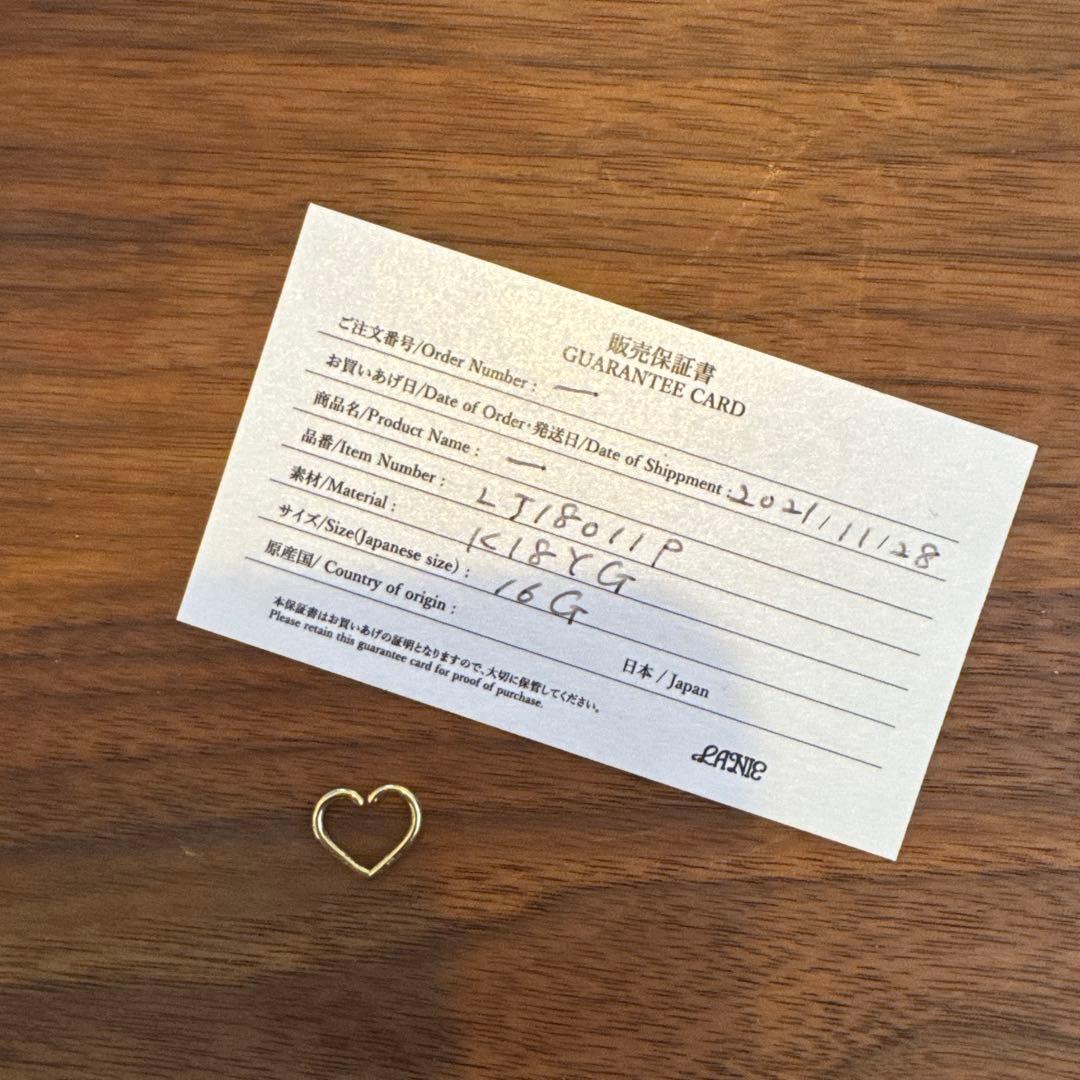 販売保証書
GUARANTEE CARD
ご注文番号/Order Number : —
お買いあげ日/Date of Order・発送日/Date of Shippment : 2021/11/28
商品名/Product Name : —
品番/Item Number : LJ18011P
素材/Material : K18YG
サイズ/Size(Japanese size) : 16G
原産国/ Country of origin : 日本 / Japan
本保証書はお買いあげの証明となりますので、大切に保管してください。
Please retain this guarantee card for proof of purchase.
LANIE